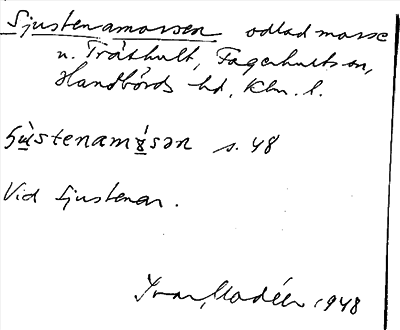 Sjustenamossen odlad mosse
n. Tråthult, Fagerhults sn,
Handbörds hd, Klm. l.
s. 48
Vid Sjustenar.
Ivar Modéer 1948